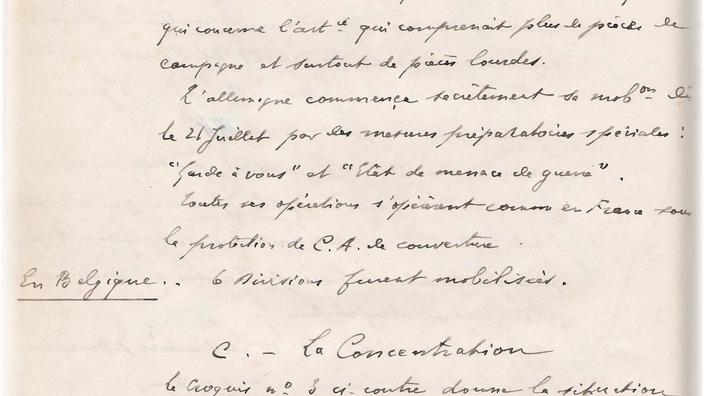 qui concerne l'artie qui comprenait plus de pièces de
campagne et surtout de pièces lourdes.
L'allemagne commença secrètement sa mobon dès
le 21 Juillet par des mesures préparatoires spéciales :
"Garde à vous" et "Etat de menace de guerre".
Toutes ses opérations s'opèrent comme en France sous
la protection de C.A. de couverture
En Belgique.. 6 Divisions furent mobilisées.
C. - La Concentration
le croquis no 3 ci-contre donne la situation